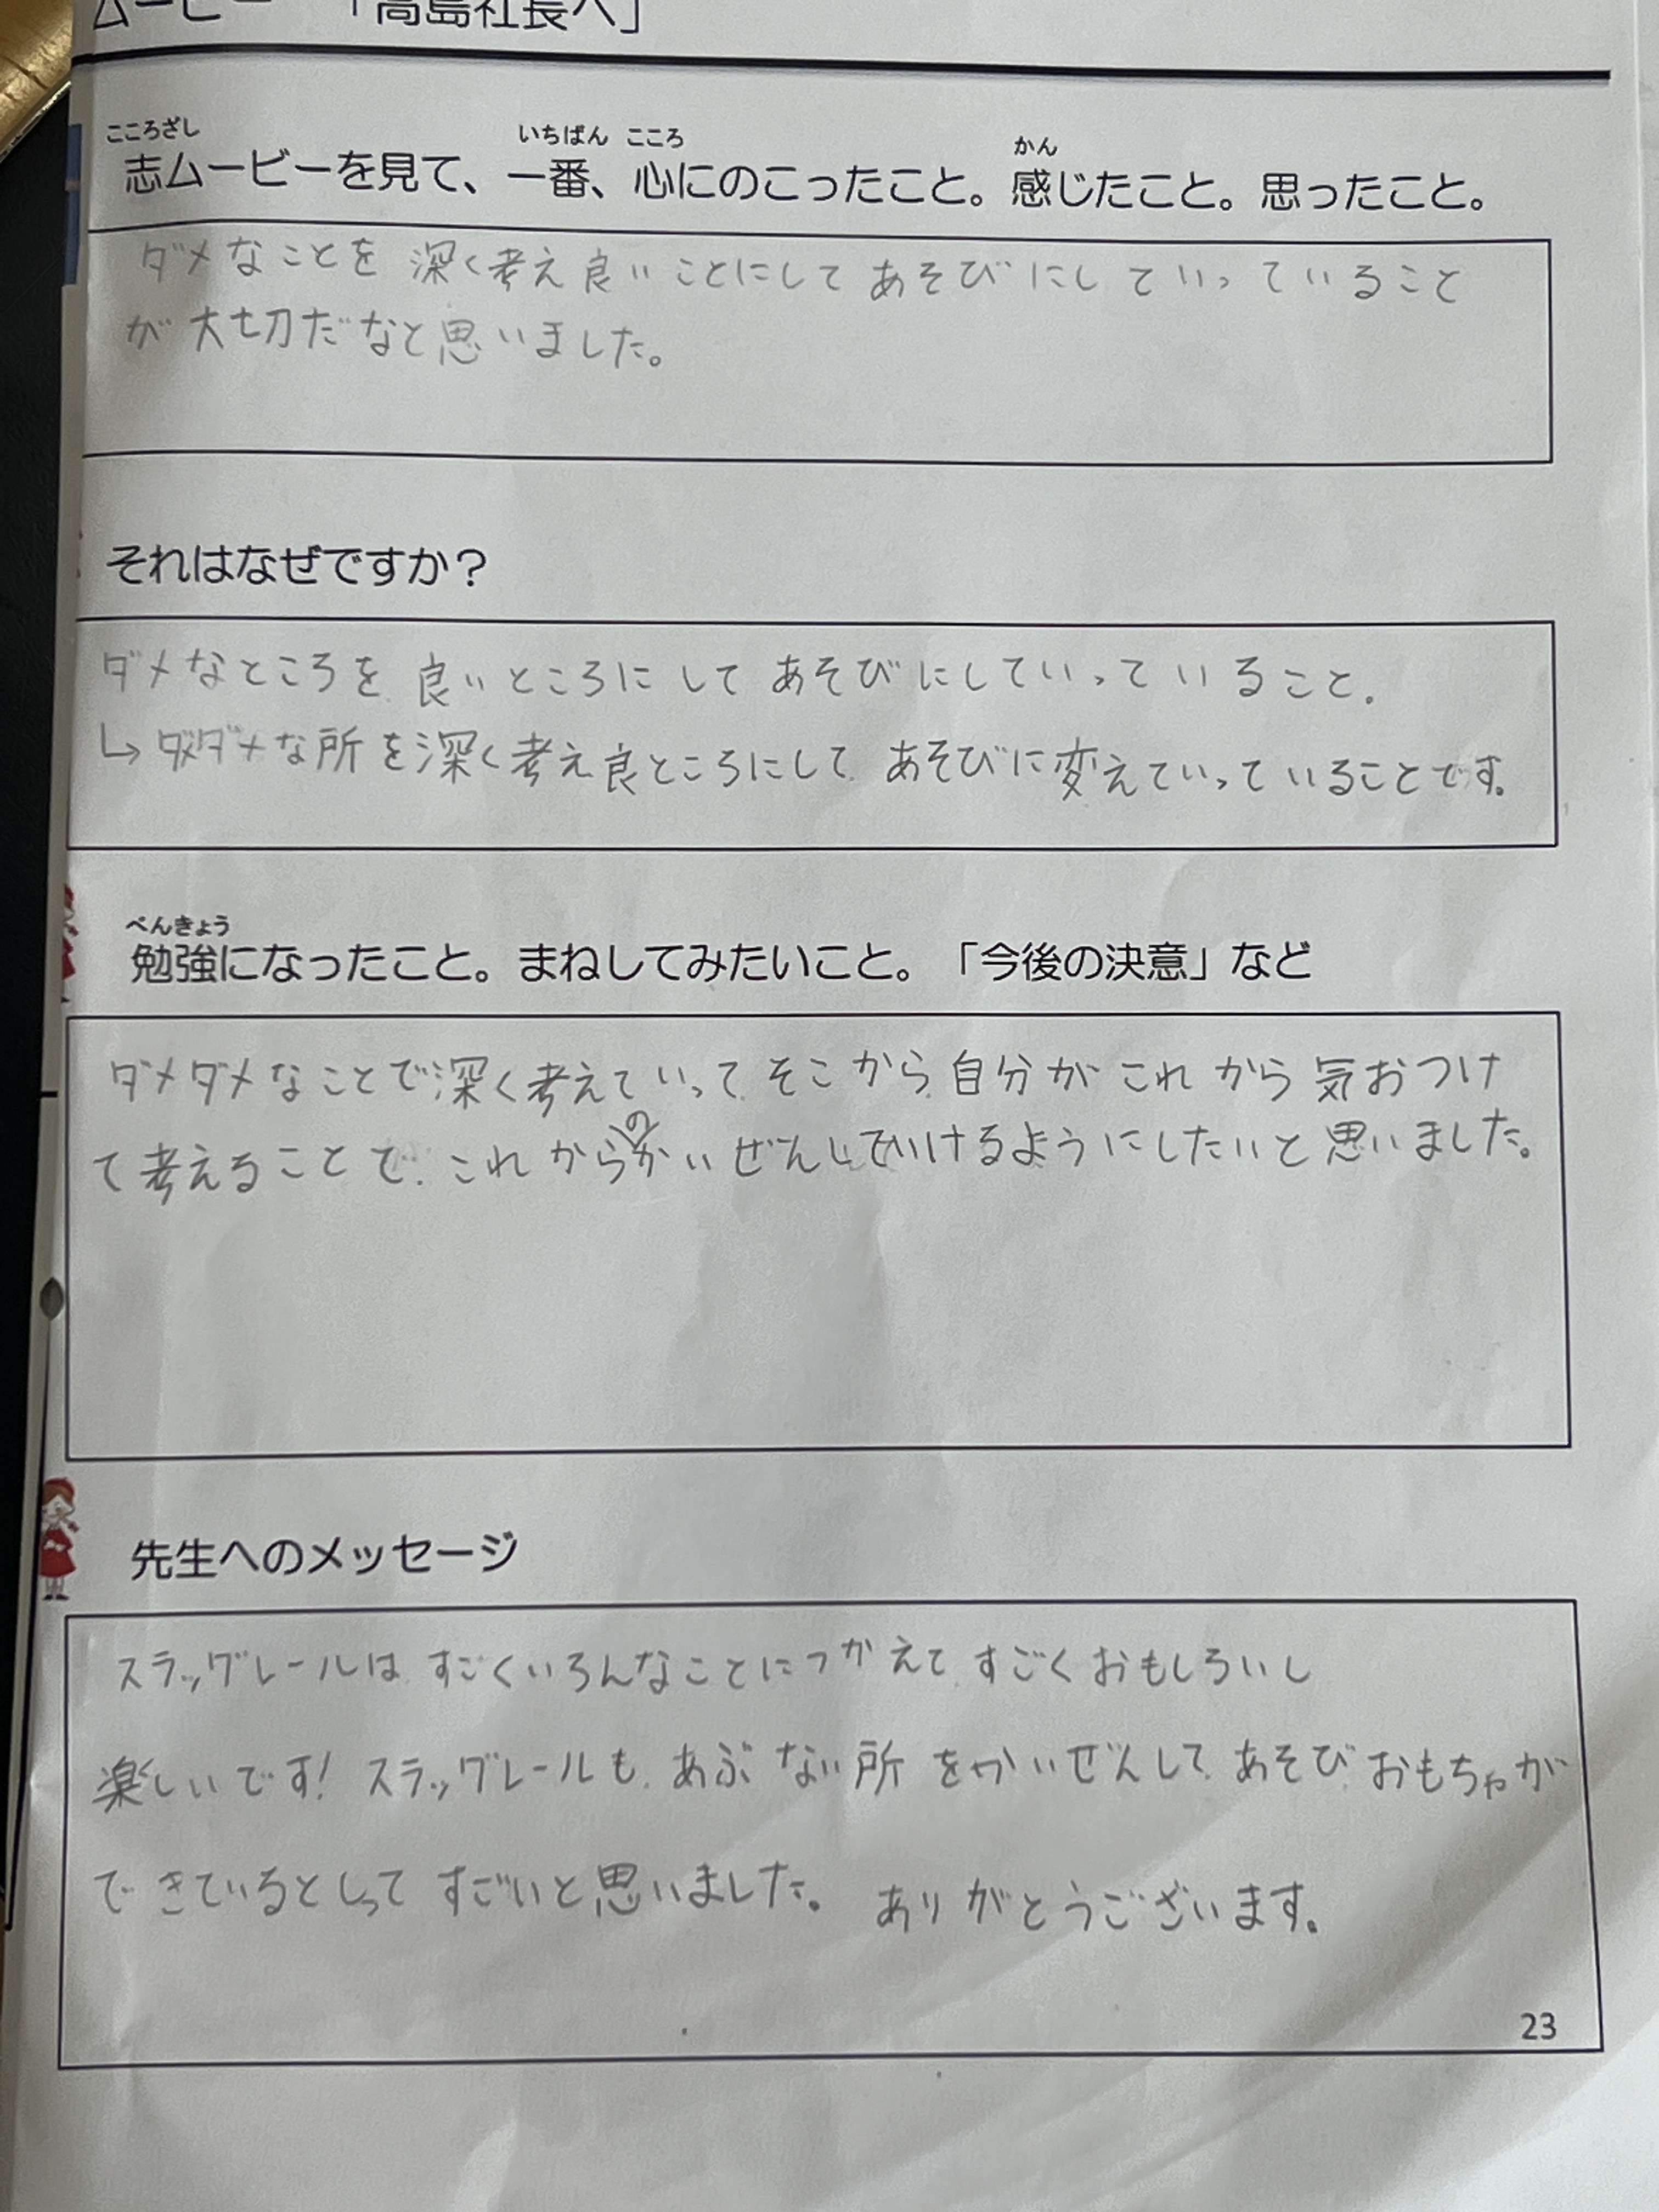 ムービー 「高島社長へ」
こころざし いちばん こころ かん
志ムービーを見て、一番、心にのこったこと。感じたこと。思ったこと。
ダメなことを深く考え良いことにしてあそびにしていっていること
が大切だなと思いました。
それはなぜですか？
ダメなところを良いところにしてあそびにしていっていること、
↳ダメな所を深く考え良ところにしてあそびに変えていっていることです。
べんきょう
勉強になったこと。まねしてみたいこと。「今後の決意」など
ダメダメなことで深く考えていって、そこから、自分がこれから気おつけ
て考えることで、これからのかいぜんしていけるようにしたいと思いました。
先生へのメッセージ
スラッグレールは、すごくいろんなことにつかえて、すごくおもしろいし
楽しいです！スラッグレールも、あぶない所をかいぜんして、あそび、おもちゃが
できているとしってすごいと思いました。ありがとうございます。
23